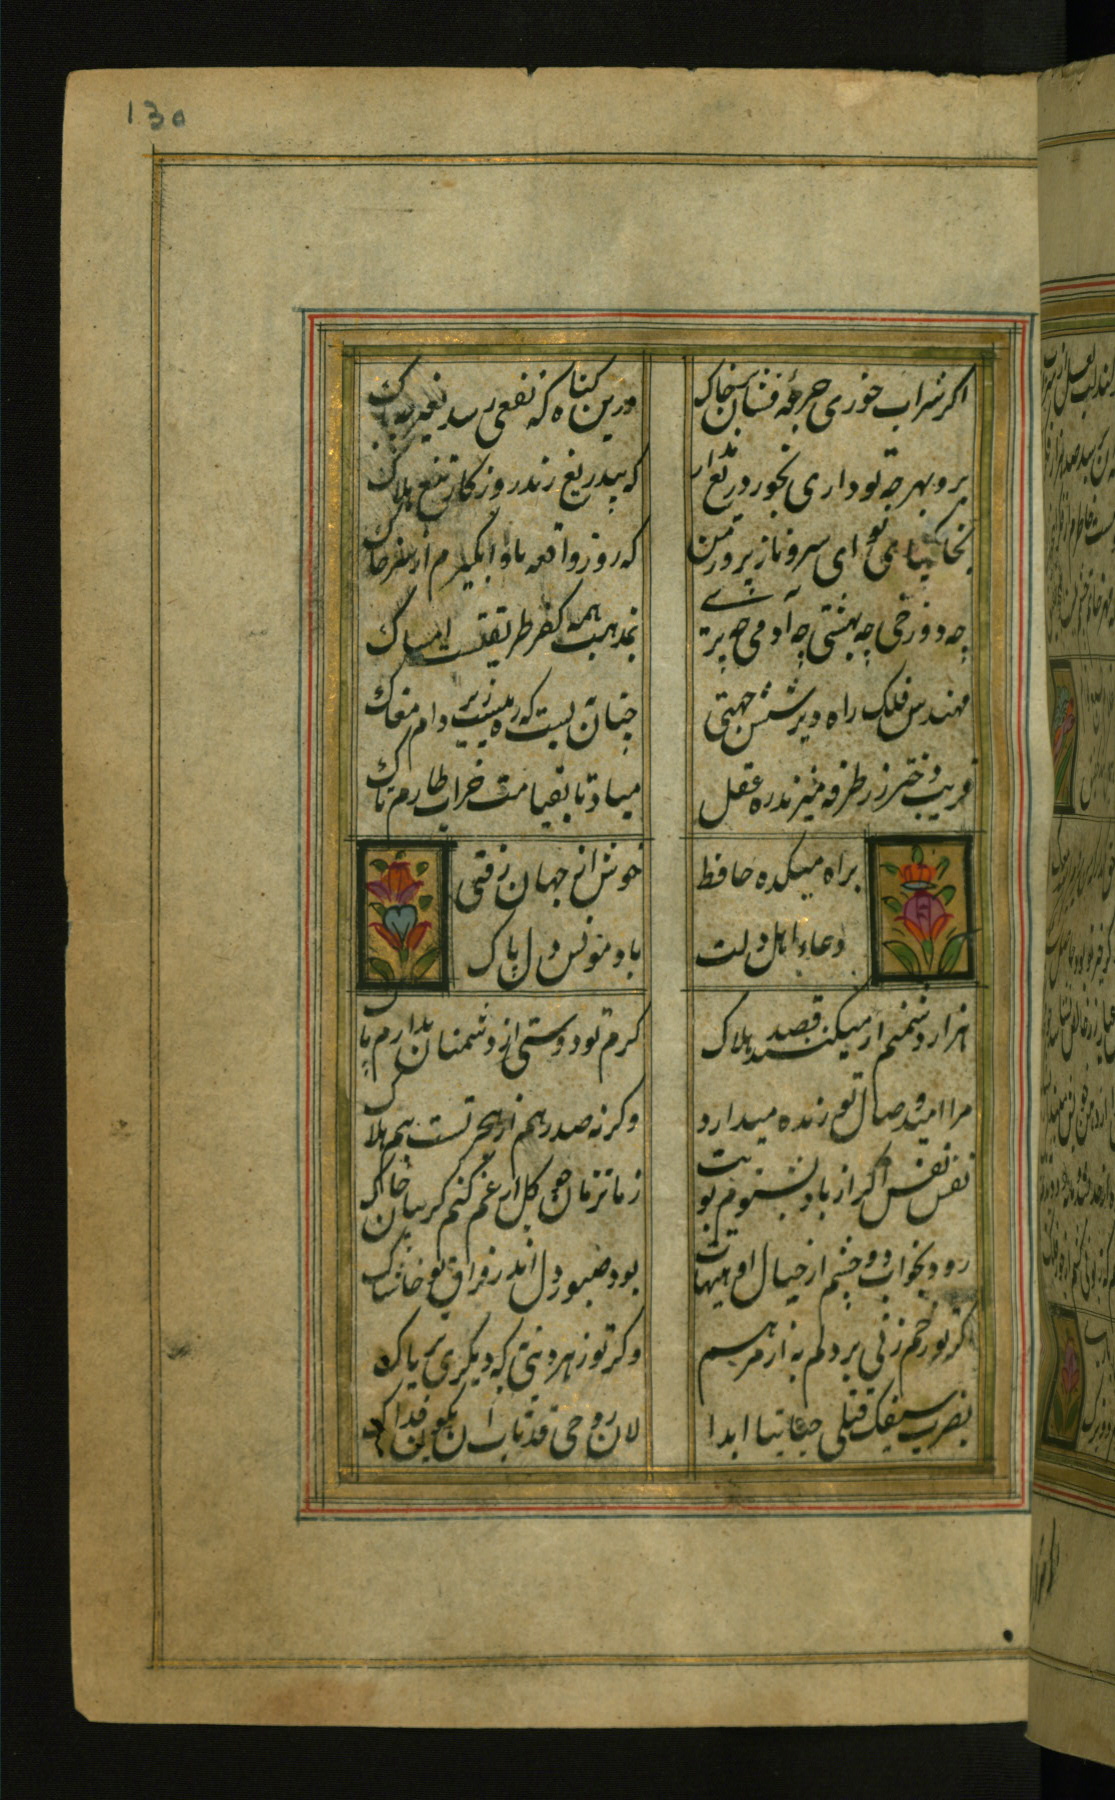 130
اگر شراب خوری جرعهٔ فشان بر خاک ورین گناه که نفعی رسد بغیر چه باک
برو بهر چه تو داری بخور دریغ مدار که بیدریغ زند روزگار تیغ هلاک
بخاکپای تو ای سرو نازپرور من که روز واقعه پا وا مگیرم از سر خاک
چه دوزخی چه بهشتی چه آدمی چه پری بمذهب همه کفر طریقتست امساک
مهندس فلک راه دیر شش جهتی چنان ببست که ره نیست زیر دام مغاک
فریب دختر رز طرفه میزند ره عقل مبادتا بقیامت خراب طارم تاک
براه میکده حافظ خوش از جهان رفتی
دعاء اهل دلت باد مونس دل پاک
هزار دشمنم ار میکنند قصد هلاک گرم تو دوستی از دشمنان ندارم باک
مرا امید وصال تو زنده میدارد وگرنه صد رهم از هجر تست بیم هلاک
نفس نفس اگر از باد نشنوم بویت زمان زمان چو گل از غم کنم گریبان چاک
رود بخواب دو چشم از خیال او هیهات بود صبور دل اندر فراق تو حاشاک
گر تو زخم زنی بر دلم به از مرهم وگر تو زهر دهی به که دیگری تریاک
بضرب سیفک قتلی حیاتنا ابدا لان روحی قد تاب ان یکون فداک